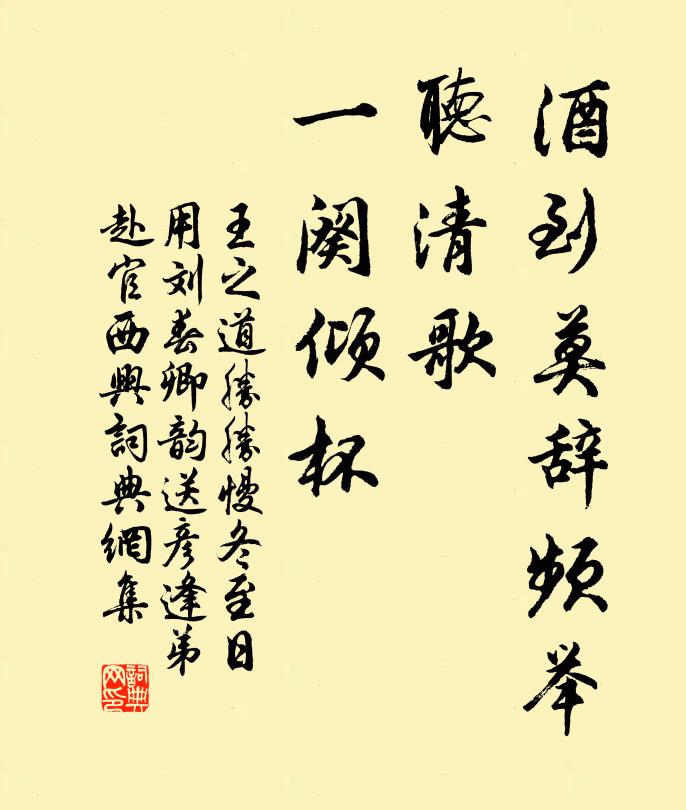 酒到莫辞频举
聽清歌
一阕倾杯
王之道勝勝慢冬至日
用刘春卿韵送彦逢弟
赴官西興詞典網集
詞典
网印